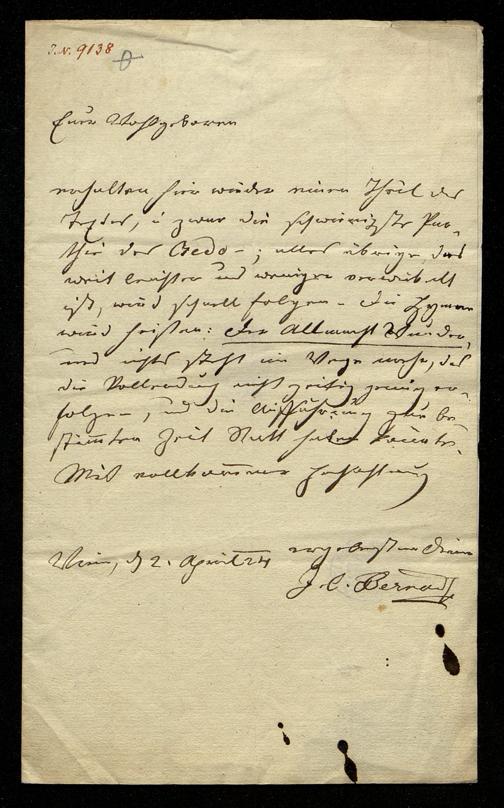 J.N. 9138
Euer Wohlgeboren
erhalten hier wieder einen Theil des
Textes, u zwar die schwierigste Par-
thie des Credo-; alles übrige, das
weit leichter und weniger verwickelt
ist, wird schnell folgen - Die Hymne
wird heißen: Der Allmacht Wunder,
und nichts steht im Wege mehr, daß
die Vollendung nicht zeitig genug er-
folgen, und die Aufführung zur be-
stimmten Zeit Statt haben könnte.
Mit vollkommener Hochachtung
Wien, d 2. April 24
ergebenster Diener
J. C. Bernard